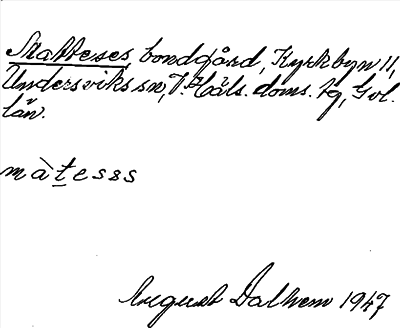 Matteses bondgård, Kyrkbyn 11,
Undersviks sn, V. Häls. doms. tg, Gvl.
län.
màtesss
August Dalhem 1947